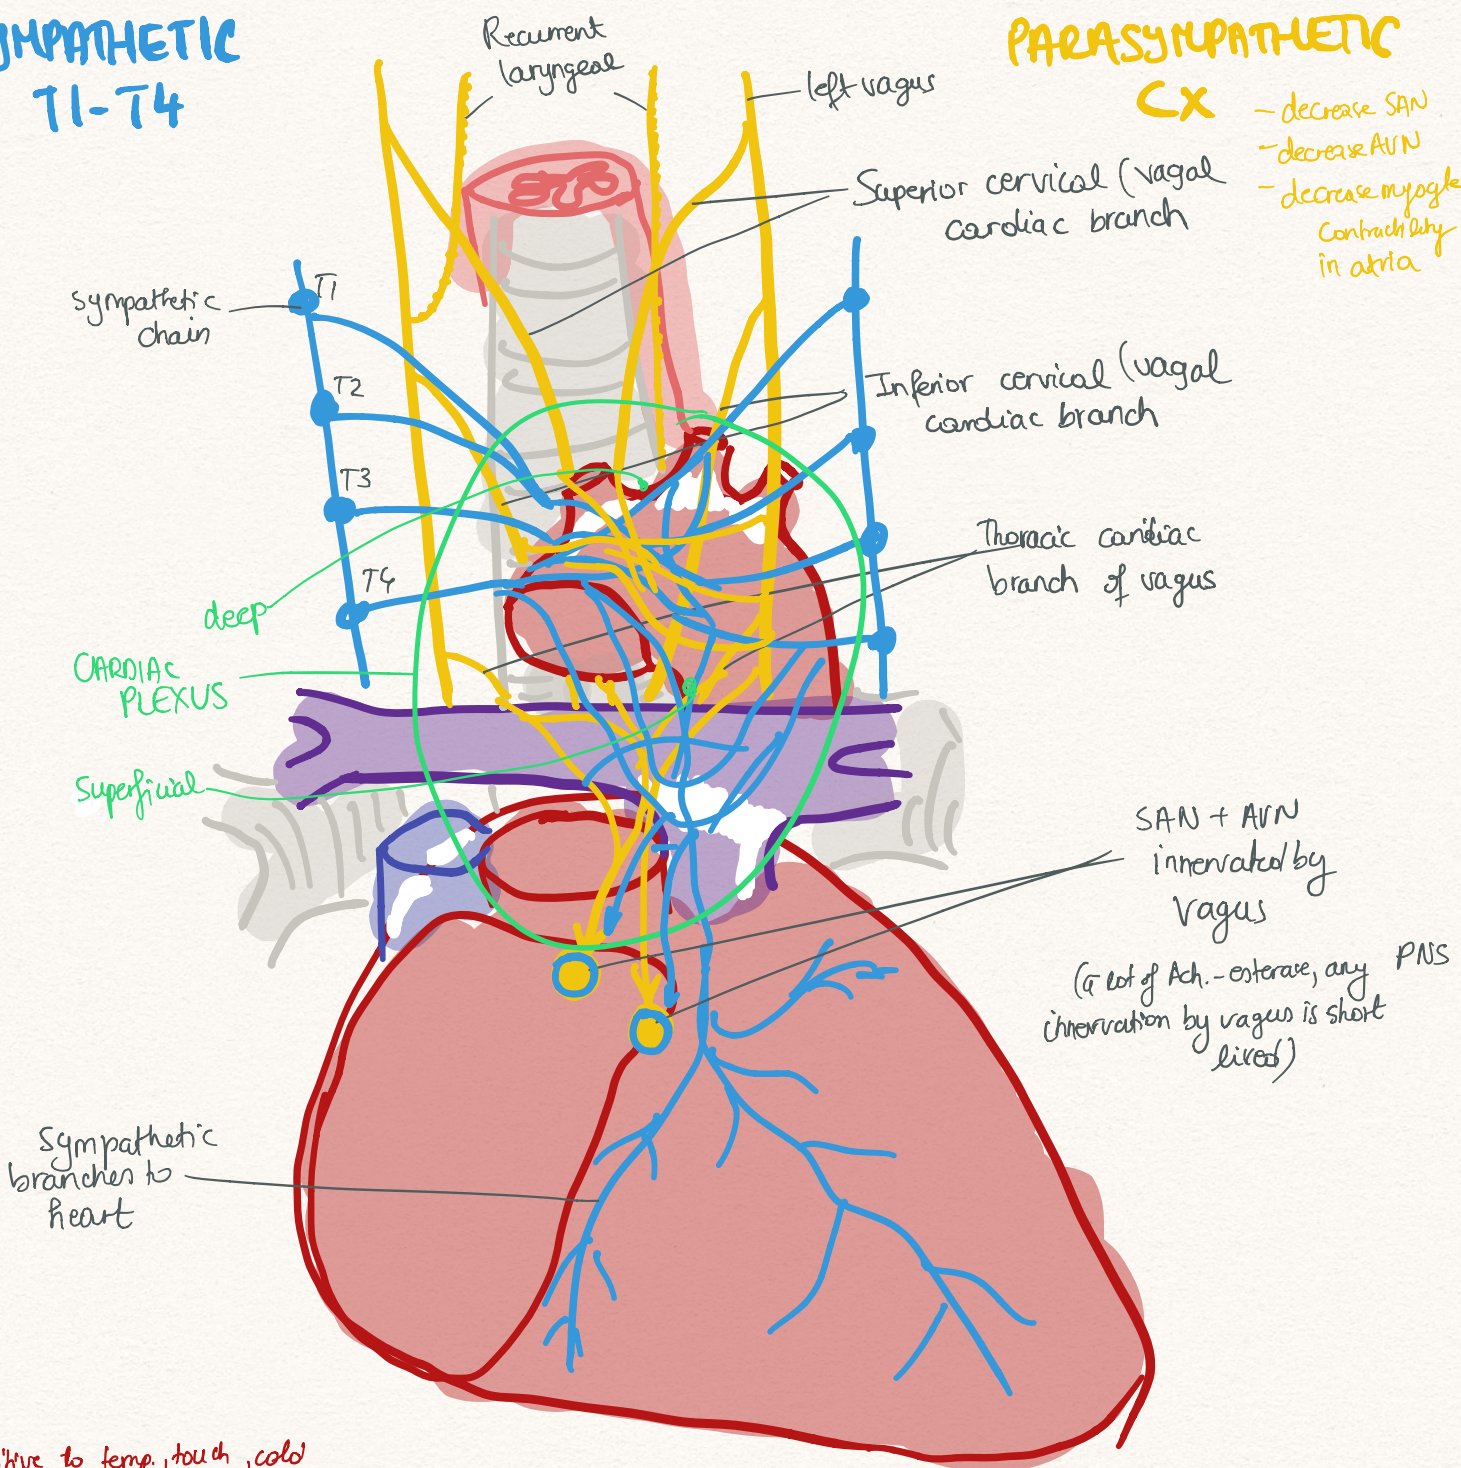 MPATHETIC
T1-T4
Recurrent
laryngeal
left vagus
PARASYMPATHETIC
CX
- decrease SAN
- decrease AVN
- decrease
contractility
in atria
Superior cervical (vagal
cardiac branch
Sympathetic
chain
T1
T2
T3
T4
Inferior cervical (vagal
cardiac branch
Thoracic cardiac
branch of vagus
deep
CARDIAC
PLEXUS
Superficial
SAN + AVN
innervated by
vagus
PNS
(a lot of Ach.-esterase, any
innervation by vagus is short
lived)
Sympathetic
branches to
heart
to temp., touch, cold